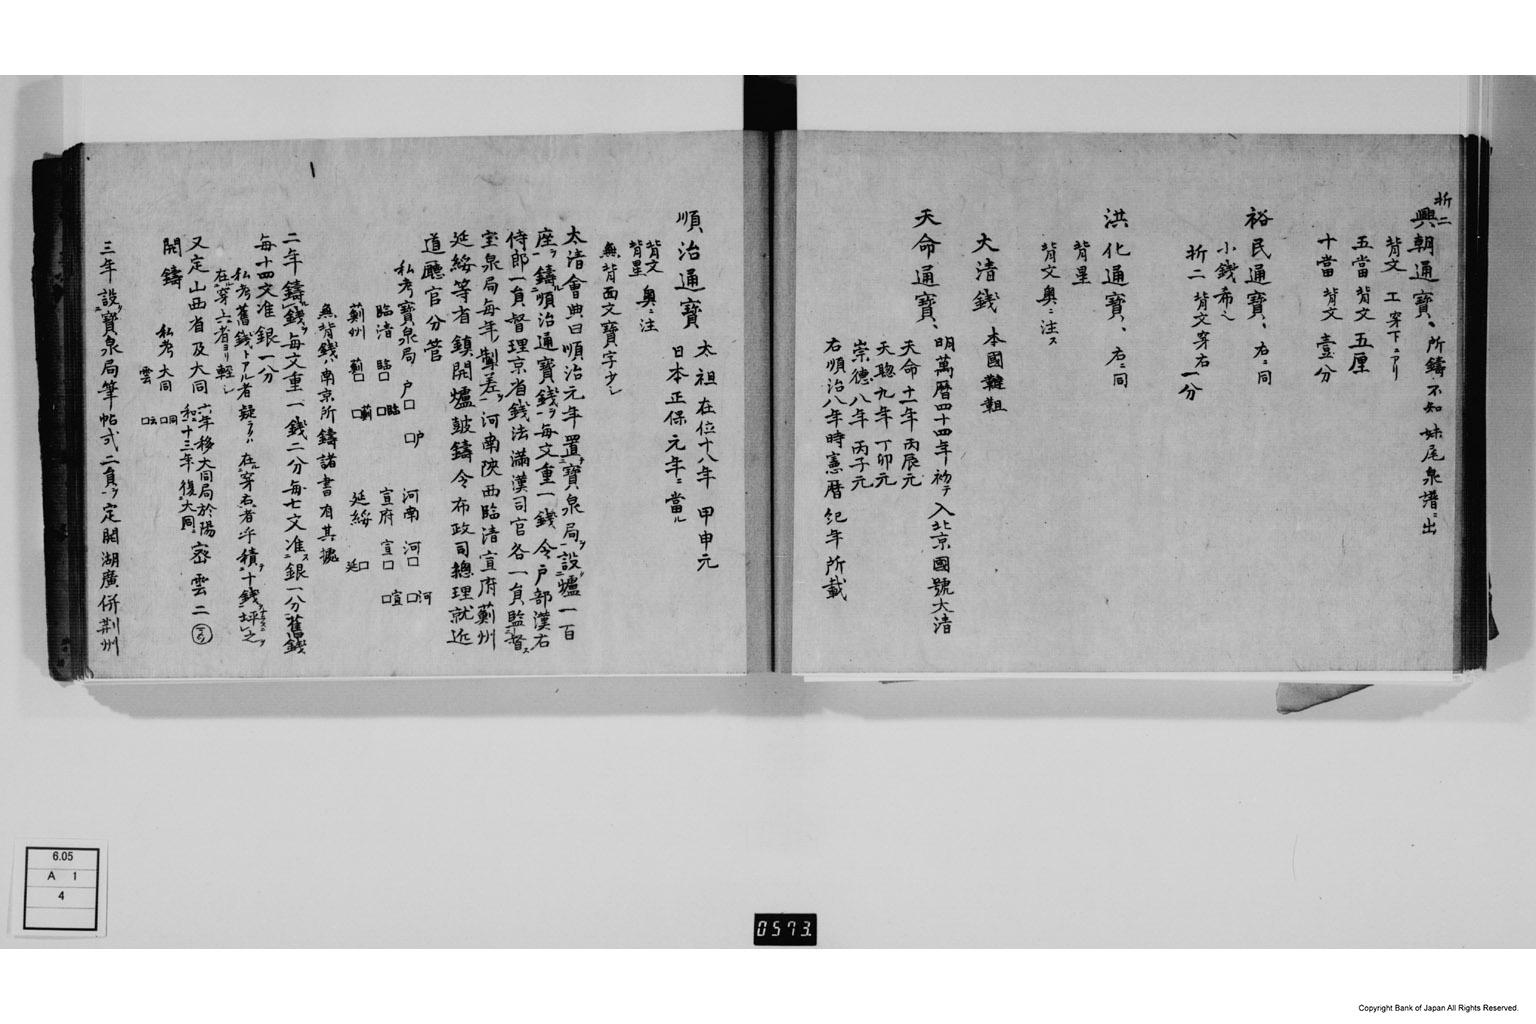 折二
興朝通寳、所鑄不知妹尾泉譜ニ出
背文 工 穿下ニアリ
五當 背文 五厘
十當 背文 壹分
裕民通寳、右ニ同
小錢希也
折二 背文穿右一分
洪化通寳、右ニ同
背星
背文奥ニ注ス
大清錢 本國韃靼
天命通寳、明萬暦四十四年初テ入北京國號大清
天命十一年丙辰元
天聰九年丁卯元
崇德八年丙子元
右順治八年時憲暦紀年所載
順治通寳 太祖在位十八年 甲申元
日本正保元年ニ當ル
背文 奥ニ注
背星
無背面文寳字少シ
太清會典曰順治元年置寳泉局設爐一百
座鑄順治通寳錢每文重一錢令户部漢右
侍郎一員督理京省錢法滿漢司官各一員監督
宝泉局每年製差河南陝西臨清宣府薊州
延綏等省鎮開爐皷鑄令布政司總理就近
道廳官分管
私考寳泉局 户□ □户 河南 河□ □河
臨清 臨□ □臨 宣府 宣□ □宣
薊州 薊□ □薊 延綏 延□
無背錢ハ南京所鑄諸書有其據
二年鑄錢每文重一錢二分每七文准銀一分舊錢
每十四文准銀一分
私考舊錢トアル者疑ラクハ在穿右者乎積十錢坪之
在穿六者ヨリ輕シ
又定山西省及大同 六年移大同局於陽和十三年復大同 密雲二
開鑄
私考 大同 □同
雲 □雲
三年設寳泉局筆帖式二員定開湖廣併荆州
6.05
A 1
4
0573.
Copyright Bank of Japan All Rights Reserved.